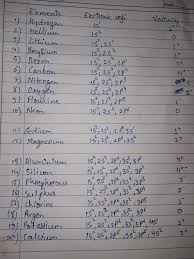 Elements Electronic config Valency
1) Hydrogen 1s¹ 1
2) Hellium 1s² 0
3) Lithium 1s², 2s¹ 1
4) Beryllium 1s², 2s²
5) Boron 1s², 2s², 2p¹
6) Carbon 1s², 2s², 2p²
7) Nitrogen 1s², 2s², 2p³
8) Oxygen 1s², 2s², 2p⁴
9) Flourine 1s², 2s², 2p⁵
10) Neon 1s², 2s², 2p⁶ 0
11) Sodium 1s², 2s², 2p⁶, 3s¹
12) Magnesium 1s², 2s², 2p⁶, 3s²
13) Aluminium 1s², 2s², 2p⁶, 3s², 3p¹
14) Silicon 1s², 2s², 2p⁶, 3s², 3p²
15) Phosphorous 1s², 2s², 2p⁶, 3s², 3p³
16) Sulphur 1s², 2s², 2p⁶, 3s², 3p⁴
17) Chlorine 1s², 2s², 2p⁶, 3s², 3p⁵
18) Argon 1s², 2s², 2p⁶, 3s², 3p⁶ 0
19) Potassium 1s², 2s², 2p⁶, 3s², 3p⁶
20) Calcium 1s², 2s², 2p⁶, 3s², 3p⁶, 4s²